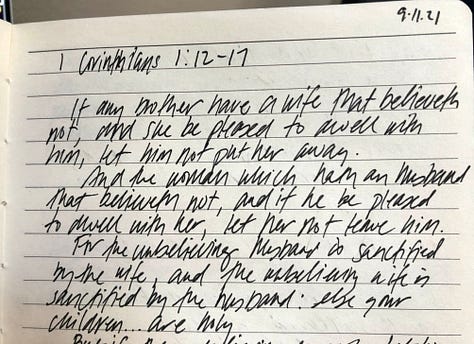 9.11.21
1 Corinthians 1:12-17
If any brother have a wife that believeth
not, and she be pleased to dwell with
him, let him not put her away.
And the woman which hath an husband
that believeth not, and if he be pleased
to dwell with her, let her not leave him.
For the unbelieving husband is sanctified
by the wife, and the unbelieving wife is
sanctified by the husband: else your
children... are holy